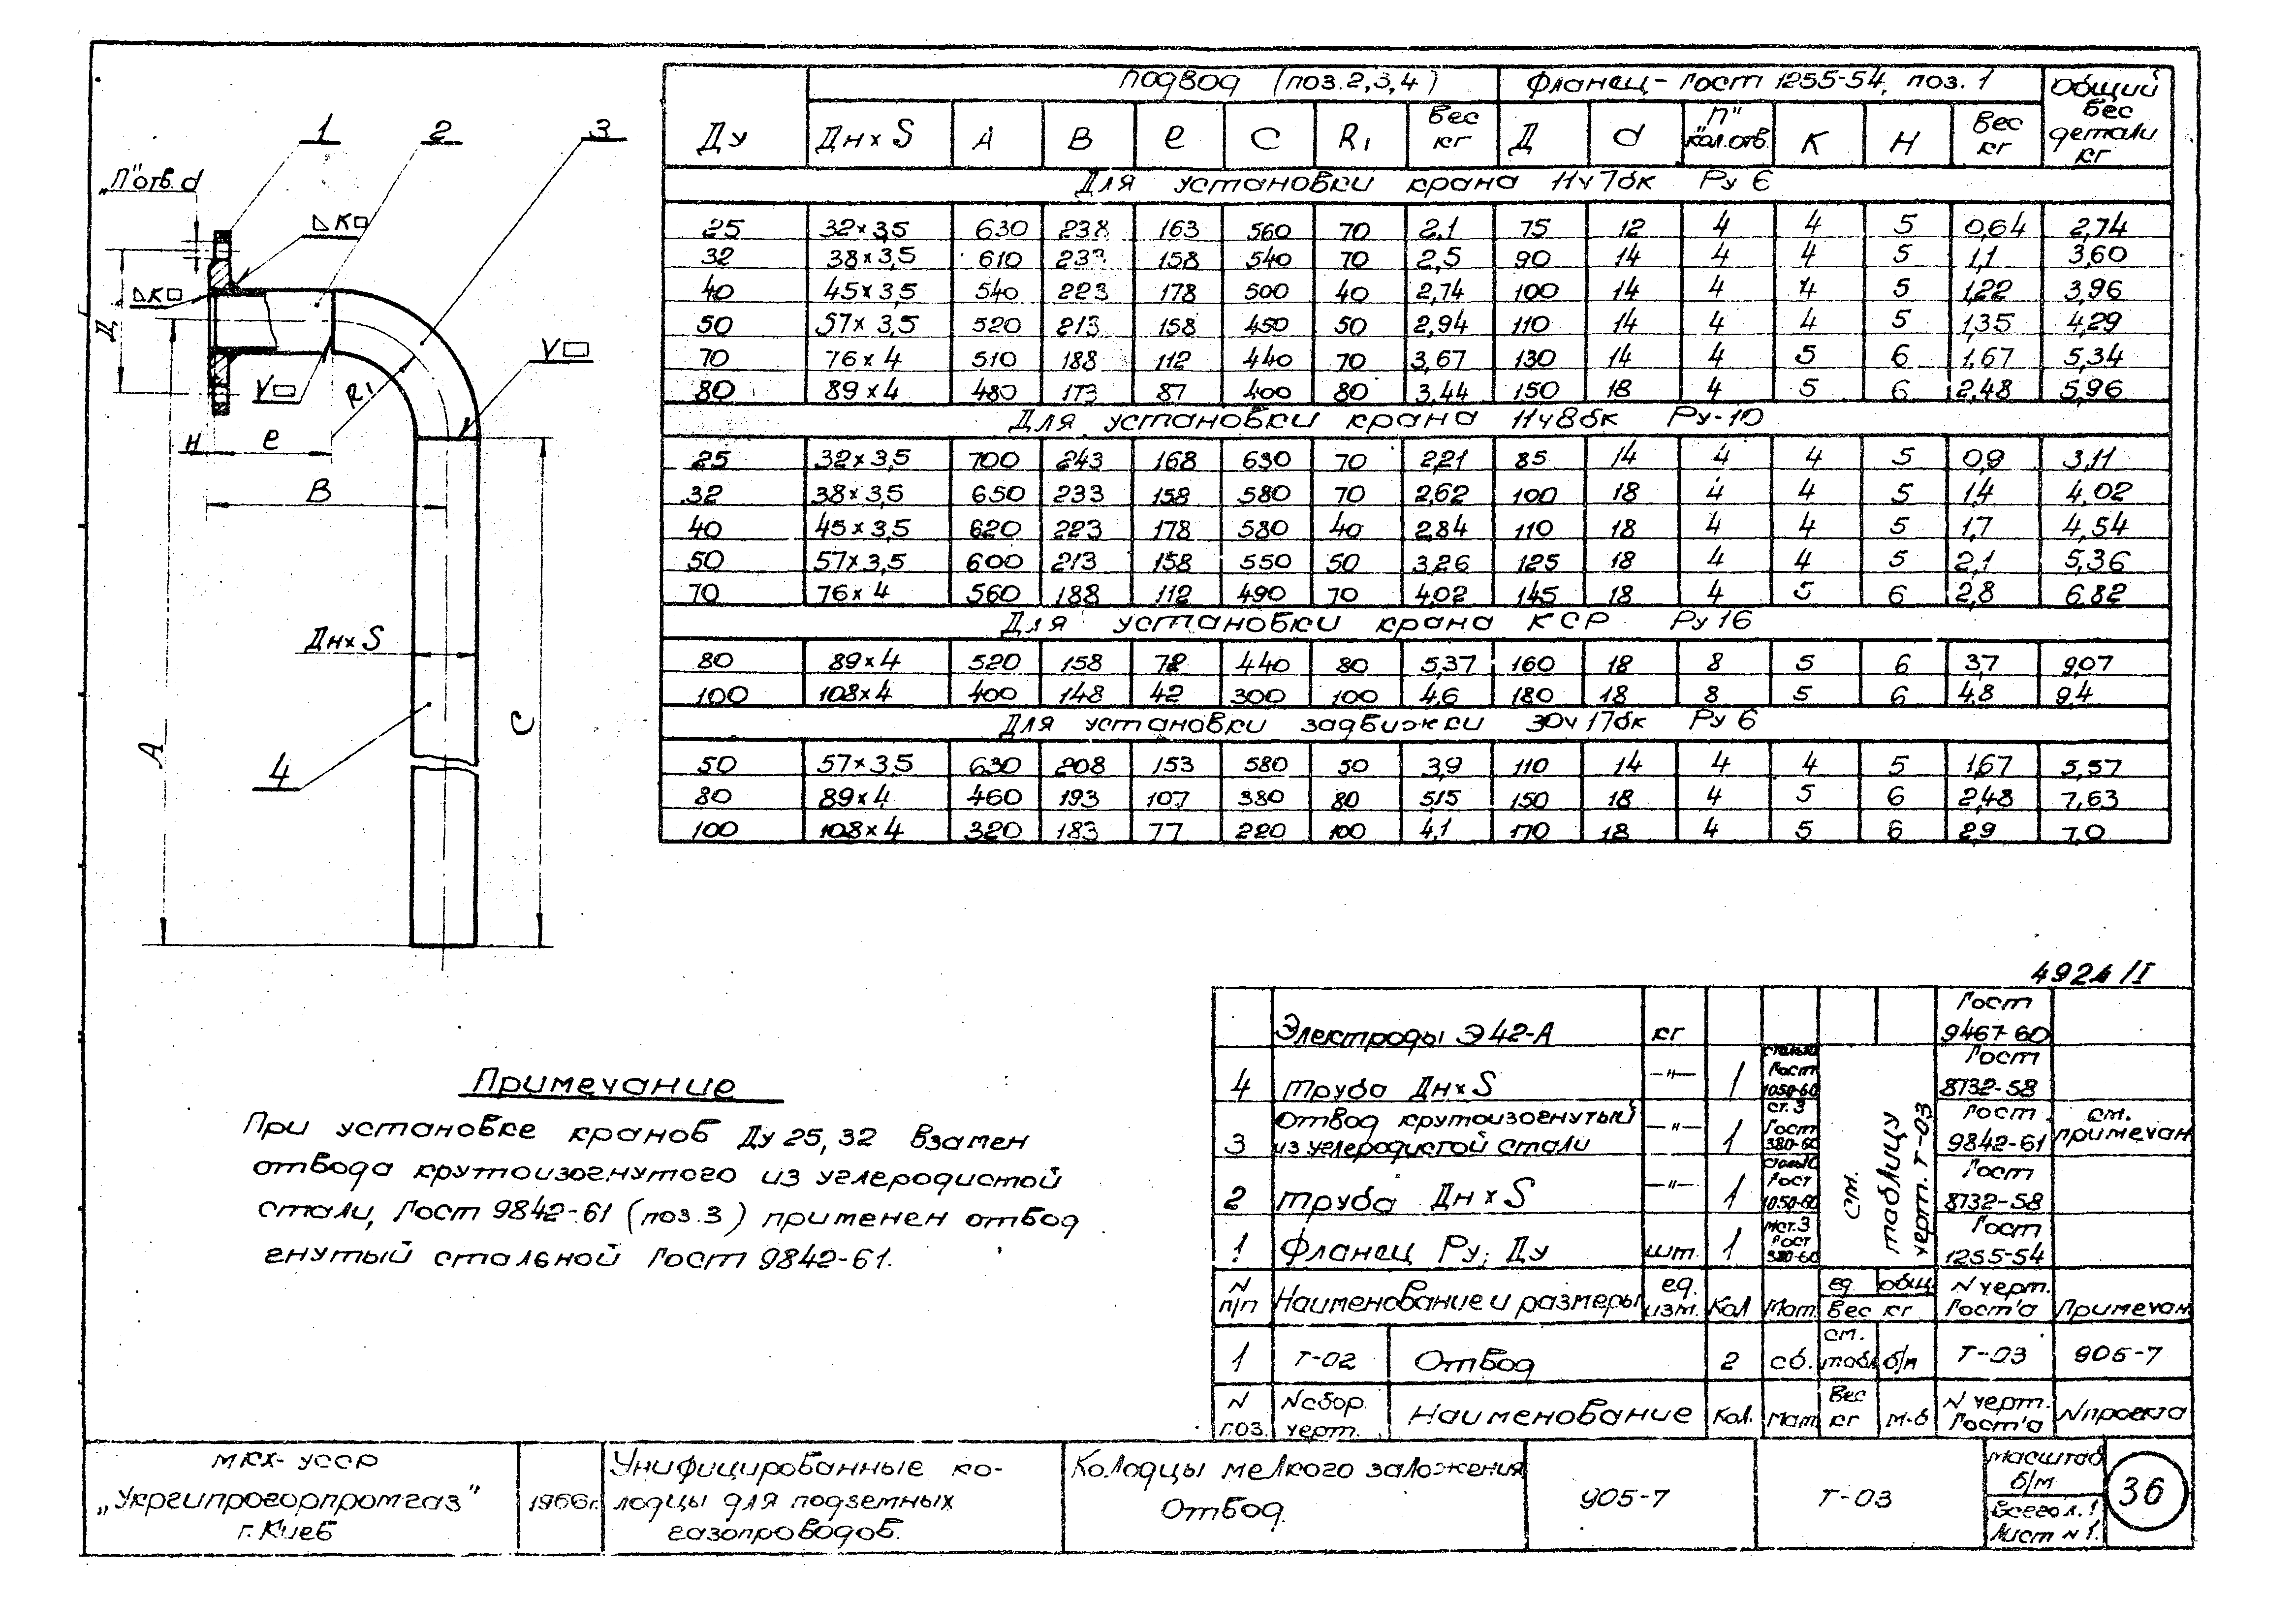 1
2
3
„П" отв. d
△К□
△К□
Д
V□
V□
R₁
н
е
В
Дн х S
А
С
4
Подвод (поз. 2,3,4) | Фланец - Гост 1255-54, поз. 1 | Общий вес детали кг
Ду | Дн х S | А | В | е | С | R₁ | Вес кг | Д | d | „П" кол. отв. | К | Н | Вес кг
Для установки крана 11ч7бк Ру 6
25 | 32х3,5 | 630 | 238 | 163 | 560 | 70 | 2,1 | 75 | 12 | 4 | 4 | 5 | 0,64 | 2,74
32 | 38х3,5 | 610 | 233 | 158 | 540 | 70 | 2,5 | 90 | 14 | 4 | 4 | 5 | 1,1 | 3,60
40 | 45х3,5 | 540 | 223 | 178 | 500 | 40 | 2,74 | 100 | 14 | 4 | 4 | 5 | 1,22 | 3,96
50 | 57х3,5 | 520 | 213 | 158 | 450 | 50 | 2,94 | 110 | 14 | 4 | 4 | 5 | 1,35 | 4,29
70 | 76х4 | 510 | 188 | 112 | 440 | 70 | 3,67 | 130 | 14 | 4 | 5 | 6 | 1,67 | 5,34
80 | 89х4 | 480 | 173 | 87 | 400 | 80 | 3,44 | 150 | 18 | 4 | 5 | 6 | 2,48 | 5,96
Для установки крана 11ч8бк Ру-10
25 | 32х3,5 | 700 | 243 | 168 | 630 | 70 | 2,21 | 85 | 14 | 4 | 4 | 5 | 0,9 | 3,11
32 | 38х3,5 | 650 | 233 | 158 | 580 | 70 | 2,62 | 100 | 18 | 4 | 4 | 5 | 1,4 | 4,02
40 | 45х3,5 | 620 | 223 | 178 | 580 | 40 | 2,84 | 110 | 18 | 4 | 4 | 5 | 1,7 | 4,54
50 | 57х3,5 | 600 | 213 | 158 | 550 | 50 | 3,26 | 125 | 18 | 4 | 4 | 5 | 2,1 | 5,36
70 | 76х4 | 560 | 188 | 112 | 490 | 70 | 4,02 | 145 | 18 | 4 | 5 | 6 | 2,8 | 6,82
Для установки крана КСР Ру 16
80 | 89х4 | 520 | 158 | 72 | 440 | 80 | 5,37 | 160 | 18 | 8 | 5 | 6 | 3,7 | 9,07
100 | 108х4 | 400 | 148 | 42 | 300 | 100 | 4,6 | 180 | 18 | 8 | 5 | 6 | 4,8 | 9,4
Для установки задвижки 30ч17бк Ру 6
50 | 57х3,5 | 630 | 208 | 153 | 580 | 50 | 3,9 | 110 | 14 | 4 | 4 | 5 | 1,67 | 5,57
80 | 89х4 | 460 | 193 | 107 | 380 | 80 | 5,15 | 150 | 18 | 4 | 5 | 6 | 2,48 | 7,63
100 | 108х4 | 320 | 183 | 77 | 220 | 100 | 4,1 | 170 | 18 | 4 | 5 | 6 | 2,9 | 7,0
Примечание
При установке кранов Ду 25, 32 взамен
отвода крутоизогнутого из углеродистой
стали, Гост 9842-61 (поз. 3) применен отвод
гнутый стальной Гост 9842-61.
/I
Электроды Э42-А | кг | Гост 9467-60
4 | Труба Дн х S | —"— | 1 | Гост 1050-60 | Гост 8732-58
3 | Отвод крутоизогнутый из углеродистой стали | —"— | 1 | ст. 3 Гост 380-60 | Гост 9842-61 | см. примечан
2 | Труба Дн х S | —"— | 1 | Гост 1050-60 | Гост 8732-58
1 | Фланец Ру; Ду | шт. | 1 | мст. 3 Гост 380-60 | Гост 1255-54
см. таблицу черт. Т-03
N п/п | Наименование и размеры | ед. изм. | Кол | Мат. | ед. общ. Вес кг | N черт. Гост'а | Примечан
1 | Т-02 | Отвод | 2 | сб. | см. табл | б/м | Т-03 | 905-7
N поз. | N сбор. черт. | Наименование | Кол. | Мат | Вес кг | М-б | N черт. Гост'а | N проекта
МКХ- УССР
„Укргипрогорпромгаз"
г. Киев
1966г.
Унифицированные ко-
лодцы для подземных
газопроводов.
Колодцы мелкого заложения.
Отвод.
905-7
Т-03
Масштаб
б/м
Всего л. 1
Лист N 1.
36